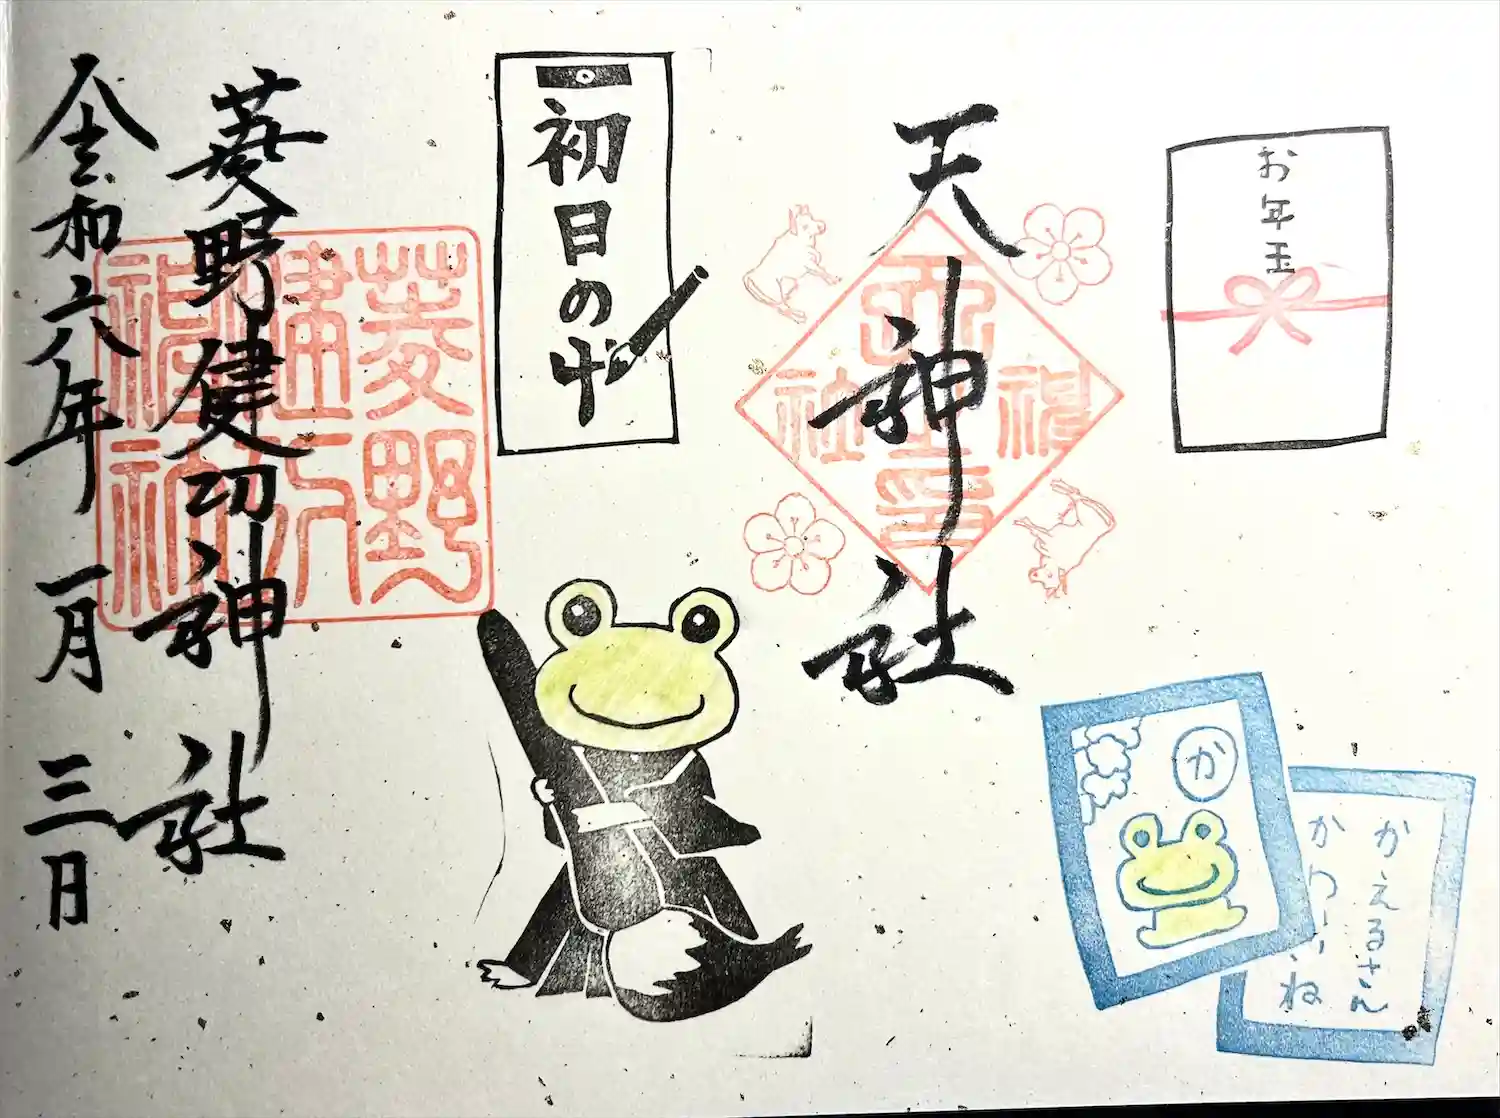 お年玉
天神社
初日の
菱野
健功
神社
菱野健功神社
令和六年 一月 三日
かえるさん
かわいいね
か